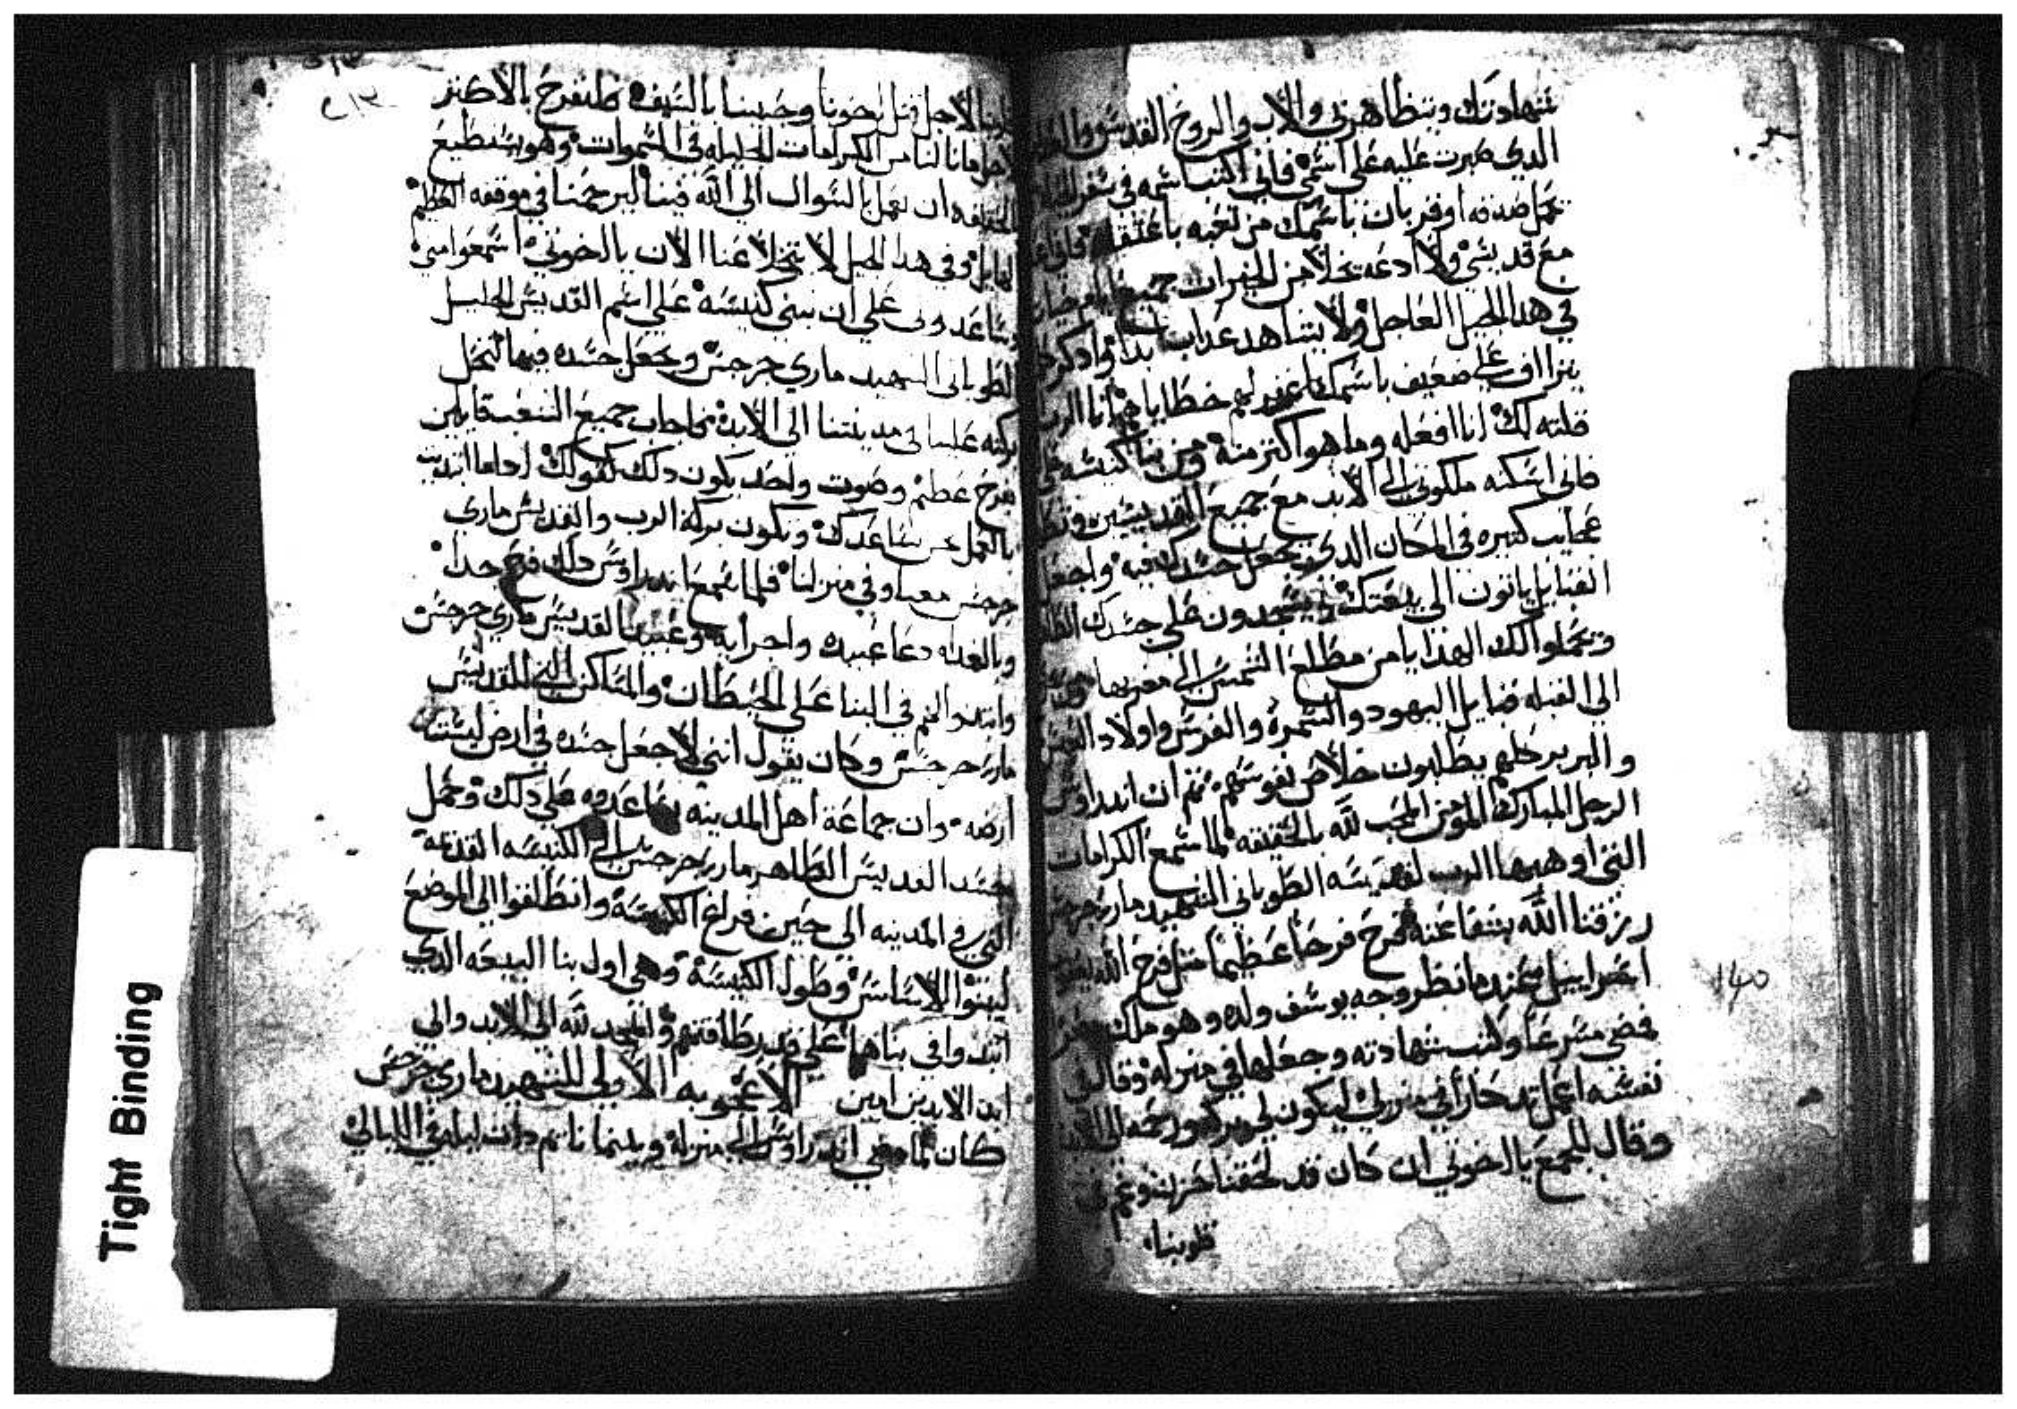 شهادتك وتظاهرني والاب والروح القدس
الدي صبرت عليه على اسمي فاني اكتب اسمه في سفر
عمل صدقه او قربان باسمك من تعبه
مع قديسي ولا ادعه يخلا من الخيرات جميع
في هدا الجيل العاجل ولا يشاهد عداب ابدا واد
يتراف على ضعيف باسمك اغفر لهم خطاياهم انا الرب
قلته لك انا افعله وما هو اكتر منه ومن بنا كنيسه
فاني اسكنه ملكوتي الى الابد مع جميع القديسين
عجايب كتيره في المكان الدي يجعل جسدك فيه واجعل
القبايل ياتون الى بيعتك يسجدون على جسدك
ويحملوا لك الهدايا من مطلع الشمس الى مغربها
الى القبله قبايل اليهود والسمرة والفرس واولاد
والبربر كلهم يطلبون خلاص نفوسهم تم ان اندراوس
الرجل المبارك المومن المحب لله بالحقيقه لما سمع الكرامات
التي اوهبها الرب لقديسه الطوباني الشهيد ماري جرجس
رزقنا الله بشفاعته فرح فرحا عظيما متل فرح الله
اسراييل عندما نظر وجه يوسف ولده وهو ملك مصر
فمضى مسرعا وكتب شهادته وجعلها في منزله وقال في
نفسه اعمل تدكارا في منزلي ليكون لي بركه ورحمه الى الابد
وقال للجمع يا اخوتي ان كان قد لحقنا حزن وغم في
قلوبنا
٢١٣
١٤٥
قلوبنا لاجل قتل اخونا وحبيبنا بالسيف فلنفرح بالاكتر
لاجل مانا لنا من الكرامات الجليله في السموات وهو يستطيع
ان يعمل بالسوال الى الله فينا ليرحمنا في موقفه العظيم
الهايل وفي هدا الجيل لا يتخلا عنا الان يا اخوتي اسمعوا مني
وساعدوني على ان نبني كنيسه على اسم القديس الجليل
الطوباني الشهيد ماري جرجس ونجعل جسده فيها لتحل
بركته علينا في مدينتنا الى الابد فاجاب جميع الشعب قايلين
بفرح عظيم وصوت واحد يكون دلك كقولك ادا ما ابتديت
بالعمل نحن نساعدك وتكون بركة الرب والقديس ماري
جرجس معنا وفي منزلنا فلما سمع اندراوس دلك فرح جدا
وبالغداه دعا عبيده واجرايه وعبيد القديس ماري جرجس
وابتدوا لهم في البنا على الحيطان والمساكن التي للقديس
ماري جرجس وكان يقول انني لا جعل جسده في ارض ليست
ارضه وان جماعة اهل المدينه ساعدوه على دلك وحمل
جسد القديس الطاهر ماري جرجس الى الكنيسه القديمه
التي في المدينه الى حين فراغ الكنيسة وانطلقوا الى الموضع
ليبنوا الاساس وطول الكنيسة وهي اول بنا البيعه الدي
ابتدوا في بناها على قدر طاقتهم والمجد لله الى الابد والى
ابد الابدين امين الاعجوبه الاولى للشهيد ماري جرجس
كان لما مضى اندراوس الى منزله وبينما نايم دات ليله في الليالي